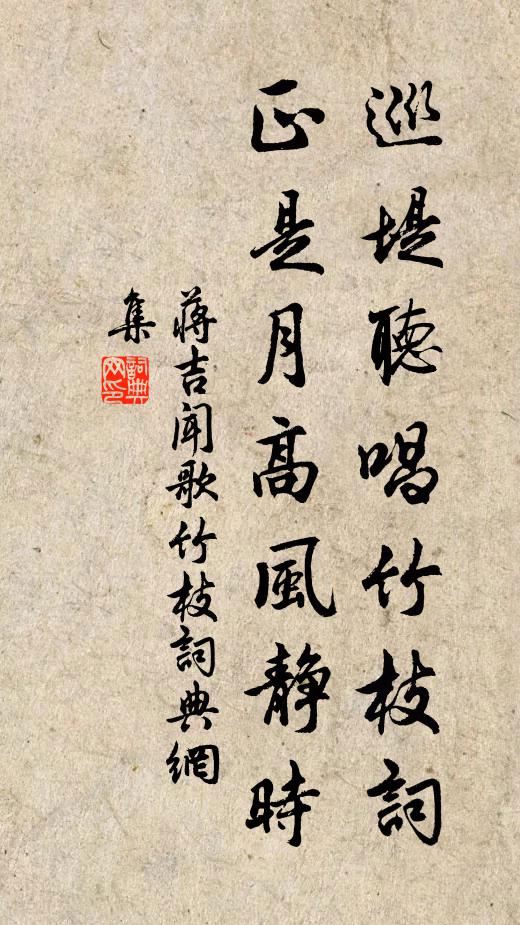 巡堤聽唱竹枝詞
正是月高風静時
蔣吉聞歌竹枝詞典網
集
詞典
网印